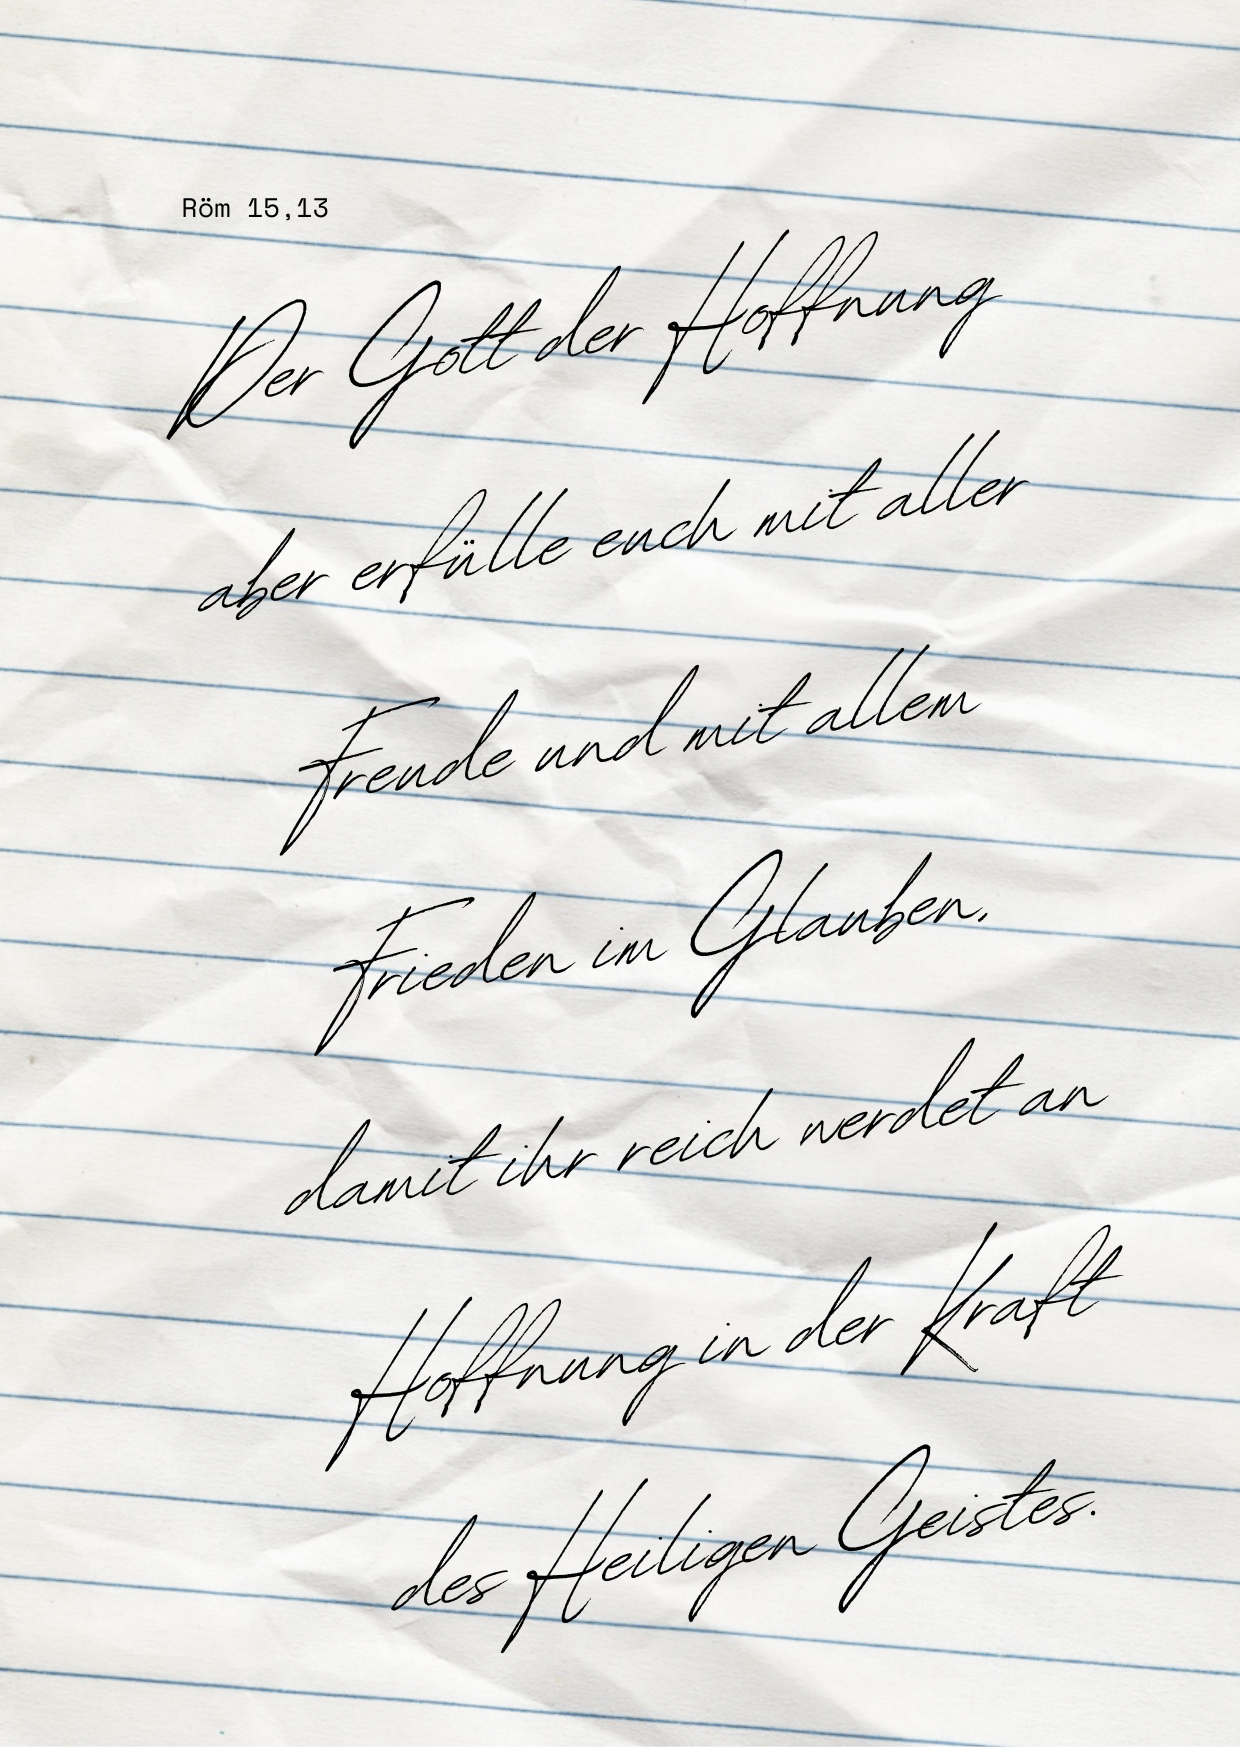 Röm 15,13
Der Gott der Hoffnung
aber erfülle euch mit aller
Freude und mit allem
Frieden im Glauben,
damit ihr reich werdet an
Hoffnung in der Kraft
des Heiligen Geistes.